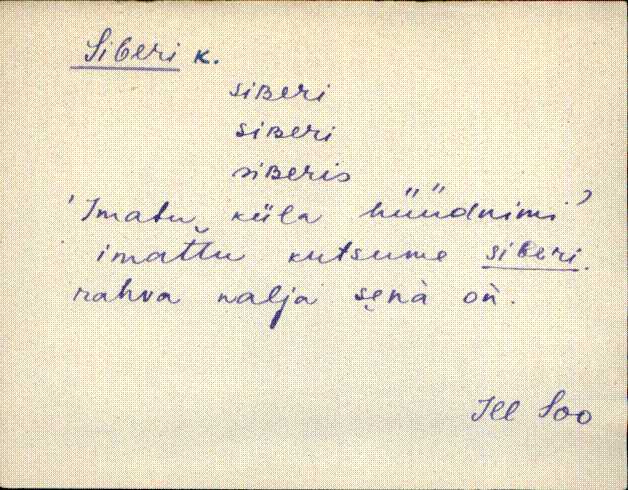 Siberi k.
siʙeri
siʙeri
siʙeris
'Imatu küla hüüdnimi'
imat̆t̆u kutsume siberi.
rahva nalja sȩnà oǹ.
Jll Soo